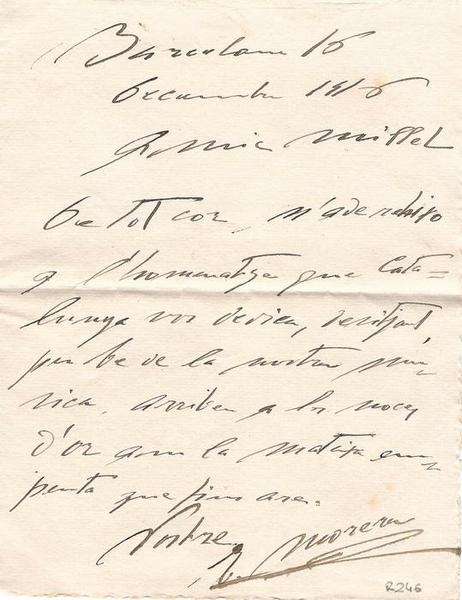 Barcelona 16
Decembre 1916
Amic Millet
De tot cor, m'aderehixo
a l'homenatge que Cata=
lunya vos dedica, desitjant,
per be de la nostra mu-
sica, arribeu a les noces
d'or amb la mateixa em-
penta que fins ara.
Vostre
E. Morera
R246